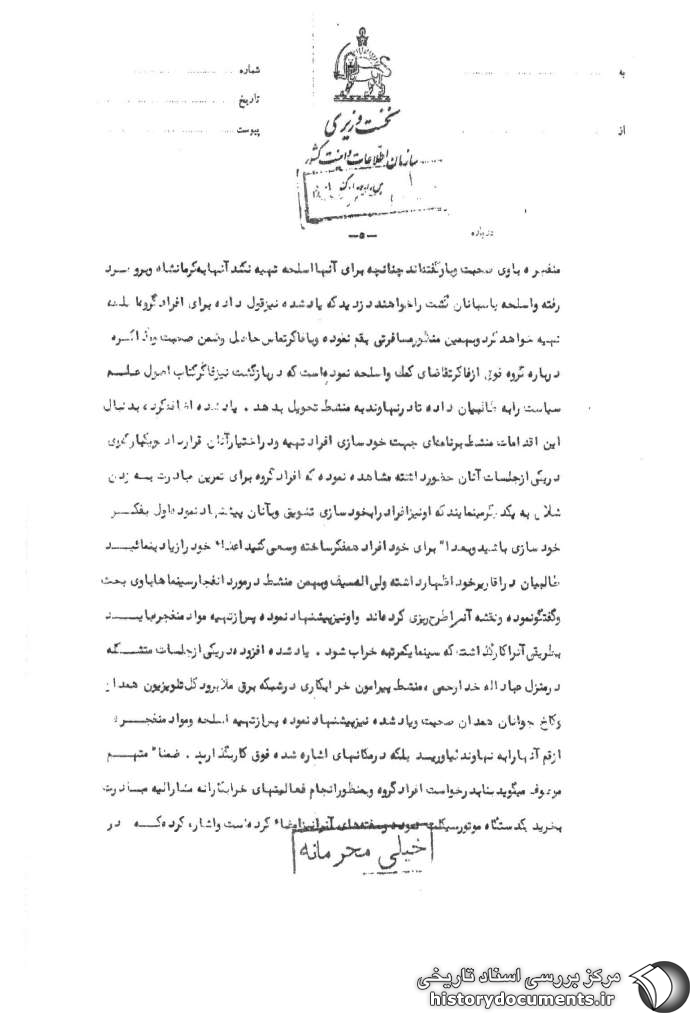 به
شماره
تاریخ
از
پیوست
نخست وزیری
سازمان اطلاعات و امنیت کشور
درباره
-۵-
منفجره باوی صحبت وبارگفته‌اند چنانچه برای آنها اسلحه تهیه نکند آنها به کرمانشاه وبروجرد
رفته واسلحه پاسبانان گشت راخواهند دزدید که یادشده نیزقول داده برای افراد گروه اسلحه
تهیه خواهد کرد وبهمین منظورمسافرتی بقم نموده وبافاکرتماس حاصل وضمن صحبت ومذاکره
درباره گروه فوق ازفاکرتقاضای کمک واسلحه نموده‌است که دربازگشت نیزفاکرکتاب اصول علم
سیاست رابه طالبیان داده تادرنهاوندبه منشط تحویل بدهد . یادشده اضافه‌کرد، بدنبال
این اقدامات منشط برنامه‌ای جهت خودسازی افراد تهیه ودراختیارآنان قرارداد
دریکی ازجلسات آنان حضورداشته مشاهده نموده که افرادگروه برای تمرین مبادرت بـه زدن
شلاق به یکدیگرمینمایند که اونیزافرادرابخودسازی تشویق وبآنان پیشنهاد نموده اول بفکر
خودسازی باشید وبعدا" برای خود افراد همفکرساخته وسعی کنید اعضاء خود رازیادبنمائید
طالبیان دراقاریرخود اظهارداشته ولی اله سیف وبهمن منشط درمورد انفجارسینماهاباوی بحث
وگفتگونموده ونقشه آنراطرح ریزی کرده‌اند واونیزپیشنهادنموده پس ازتهیه مواد منفجره‌بایـد
بطریقی آنراکارگذاشت که سینما یکمرتبه خراب شود . یادشده افزوده دریکی ازجلسات متشکله
درمنزل عباداله خدارحمی ،منشط پیرامون خرابکاری درشبکه برق ملایرودکل تلویزیون همدان
وکاخ جوانان همدان صحبت ویادشده نیزپیشنهادنموده پس ازتهیه اسلحه ومواد منفجره
ازقم آنهارابه نهاوند نیاورید بلکه درمکانهای اشاره شده فوق کاربگذارید . ضمنا" متهم
موصوف میگوید بنابدرخواست افرادگروه وبمنظورانجام فعالیتهای خرابکارانه مشارالیه مبادرت
بخرید یکدستگاه موتورسیکلت نموده وسفته‌های آنرانیزامضاء کرده‌است واشاره کرده‌کـه در
خیلی محرمانه
مرکز بررسی اسناد تاریخی
historydocuments.ir